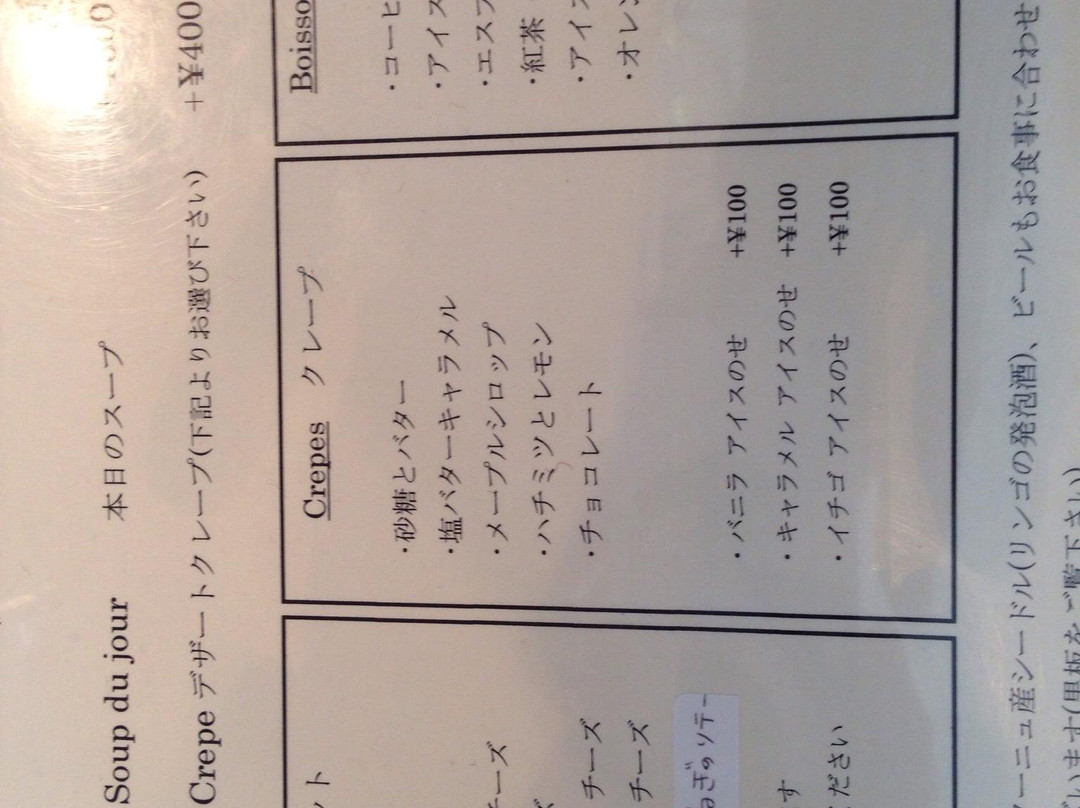 Soup du jour 本日のスープ
Crepe デザートクレープ(下記よりお選び下さい) +¥400
ット
チーズ
ズ
チーズ
チーズ
ねぎのソテー
す
ください
Crepes クレープ
・砂糖とバター
・塩バターキャラメル
・メープルシロップ
・ハチミツとレモン
・チョコレート
・バニラ アイスのせ +¥100
・キャラメル アイスのせ +¥100
・イチゴ アイスのせ +¥100
Boisso
・コーヒ
・アイス
・エスプ
・紅茶
・アイ
・オレン
ーニュ産シードル(リンゴの発泡酒)、ビールもお食事に合わせ
ざいます(黒板をご覧下さい)